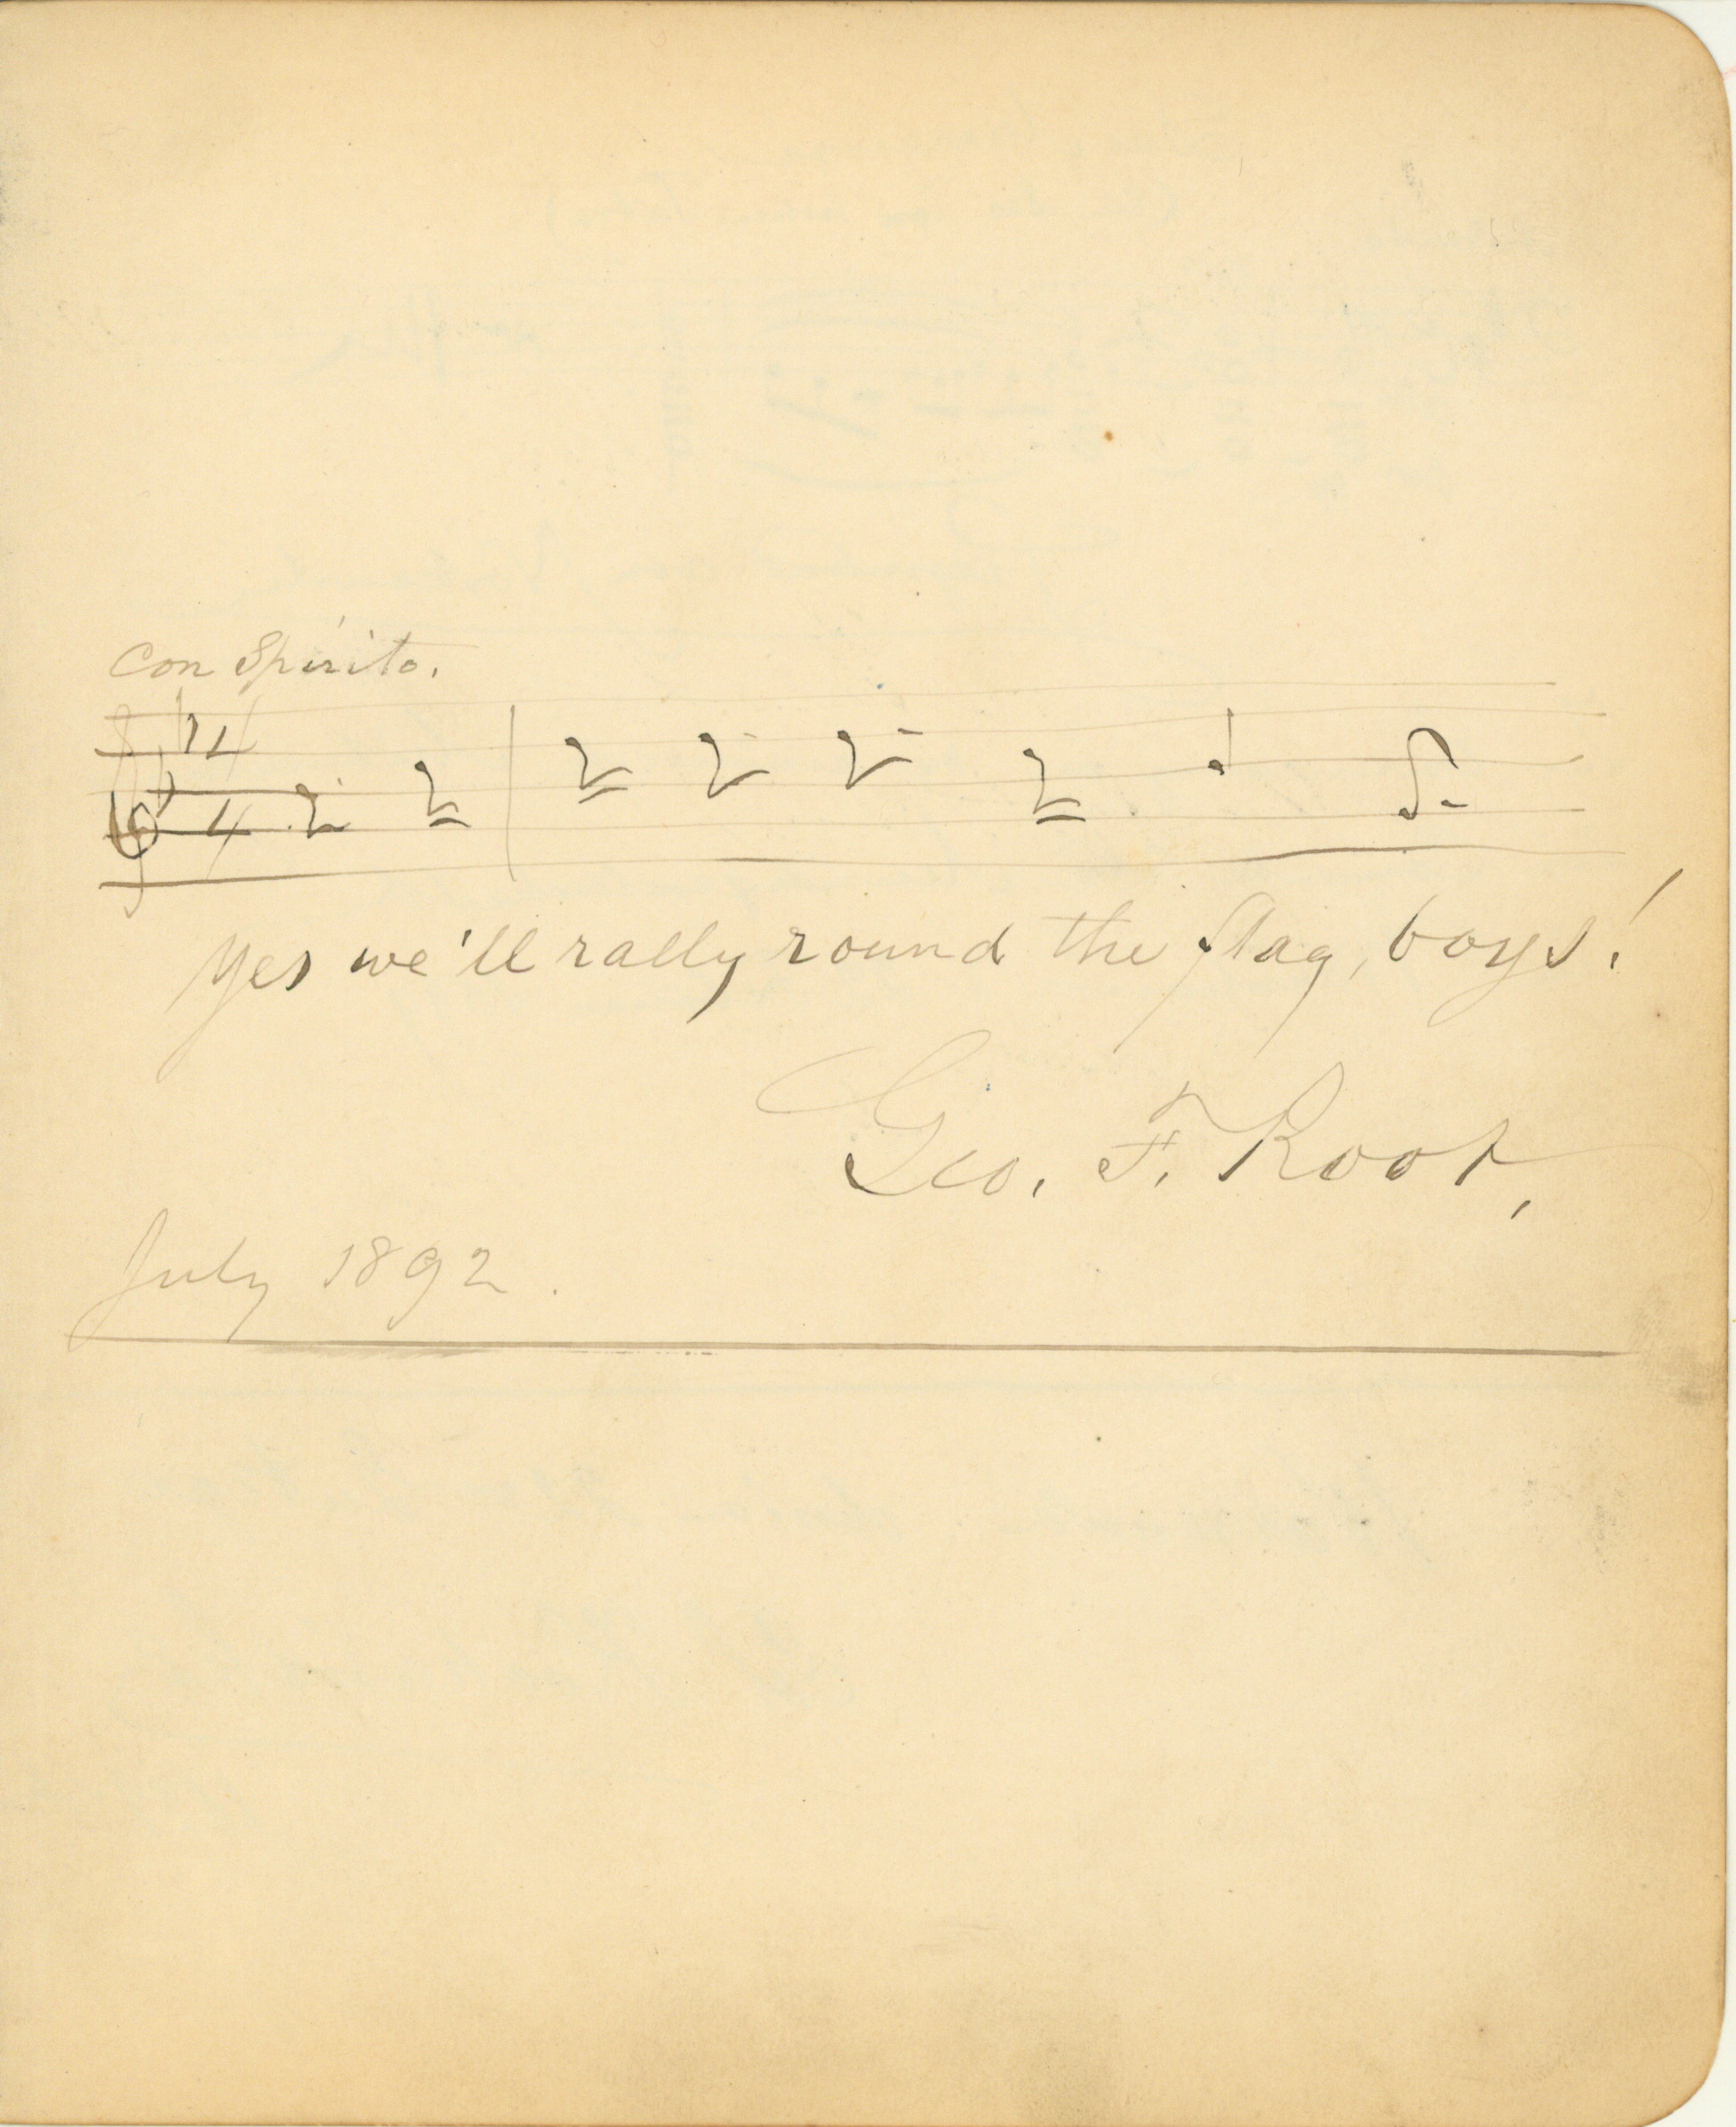 Con Spirito.
Yes we'll rally round the flag, boys!
Geo. F. Root.
July 1892.